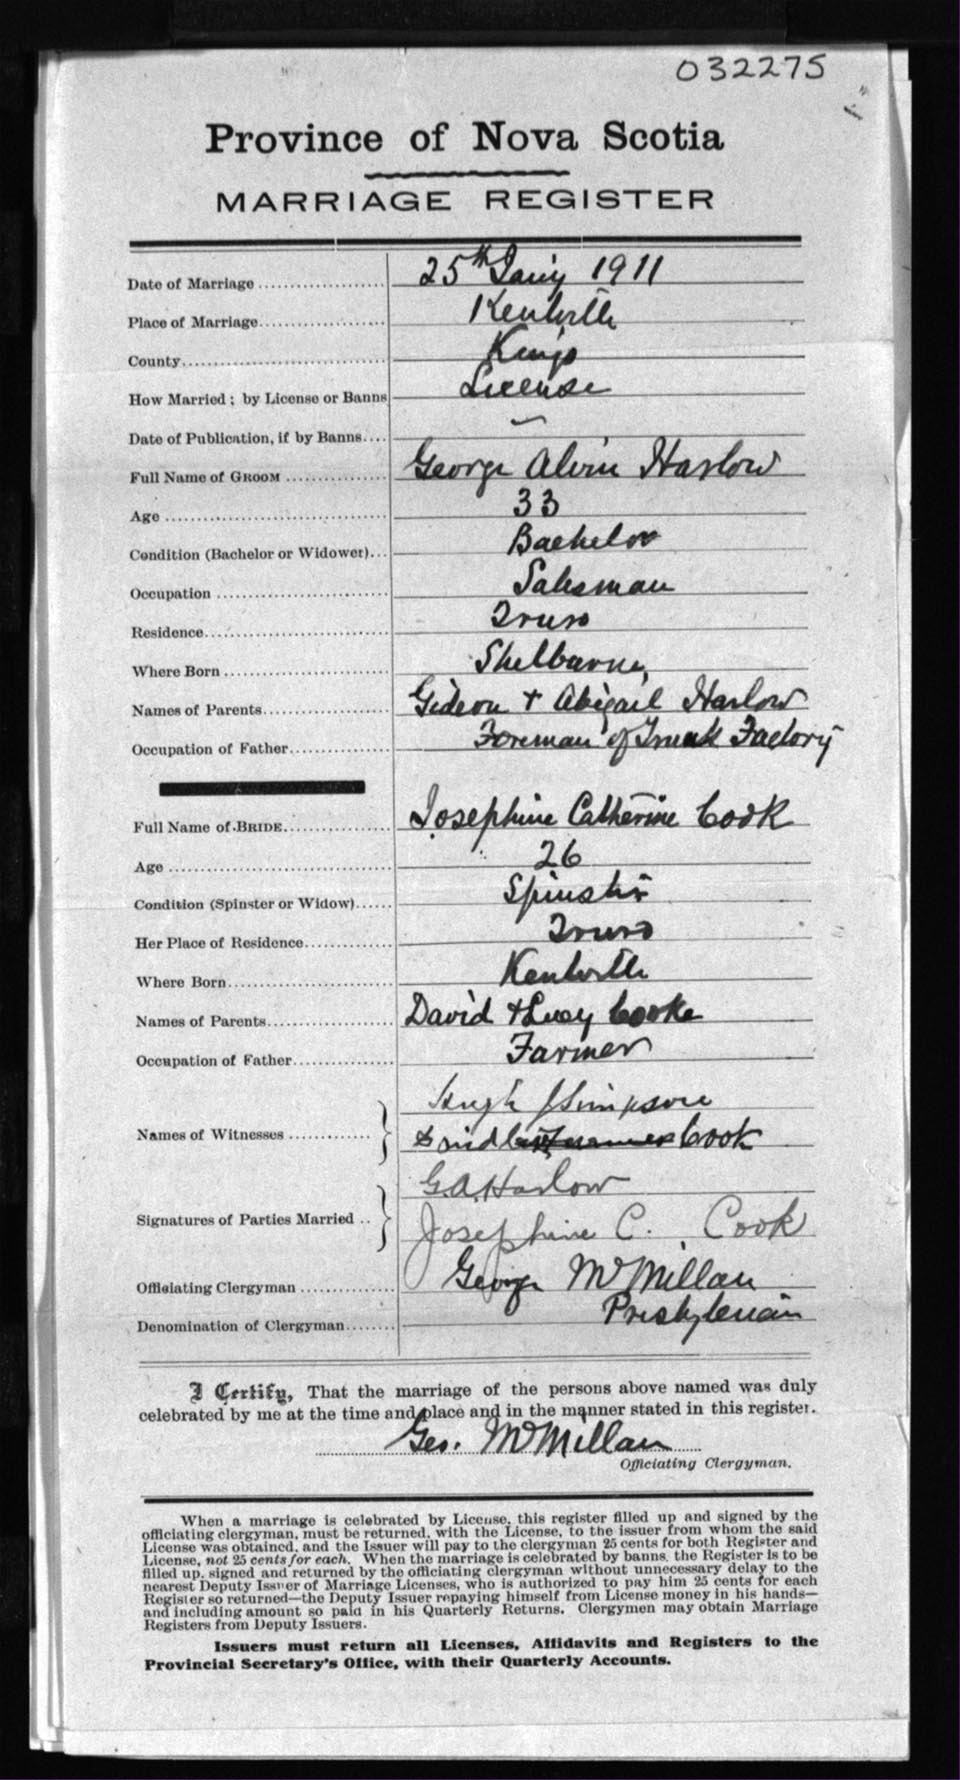 032275
Province of Nova Scotia
MARRIAGE REGISTER
Date of Marriage 25th Jany 1911
Place of Marriage Kentville
County Kings
How Married; by License or Banns License
Date of Publication, if by Banns —
Full Name of GROOM George Alvin Harlow
Age 33
Condition (Bachelor or Widower) Bachelor
Occupation Salesman
Residence Truro
Where Born Shelburne
Names of Parents Gideon + Abigail Harlow
Occupation of Father Foreman of Trunk Factory
Full Name of BRIDE Josephine Catherine Cook
Age 26
Condition (Spinster or Widow) Spinster
Her Place of Residence Truro
Where Born Kentville
Names of Parents David + Lucy Cooke
Occupation of Father Farmer
Hugh J Simpson
Names of Witnesses Cook
G.A. Harlow
Signatures of Parties Married Josephine C. Cook
Officiating Clergyman George McMillan
Denomination of Clergyman Presbyterian
I Certify, That the marriage of the persons above named was duly
celebrated by me at the time and place and in the manner stated in this register.
Geo. McMillan
Officiating Clergyman.
When a marriage is celebrated by License, this register filled up and signed by the
officiating clergyman, must be returned, with the License, to the issuer from whom the said
License was obtained, and the Issuer will pay to the clergyman 25 cents for both Register and
License, not 25 cents for each. When the marriage is celebrated by banns, the Register is to be
filled up, signed and returned by the officiating clergyman without unnecessary delay to the
nearest Deputy Issuer of Marriage Licenses, who is authorized to pay him 25 cents for each
Register so returned—the Deputy Issuer repaying himself from License money in his hands—
and including amount so paid in his Quarterly Returns. Clergymen may obtain Marriage
Registers from Deputy Issuers.
Issuers must return all Licenses, Affidavits and Registers to the
Provincial Secretary's Office, with their Quarterly Accounts.